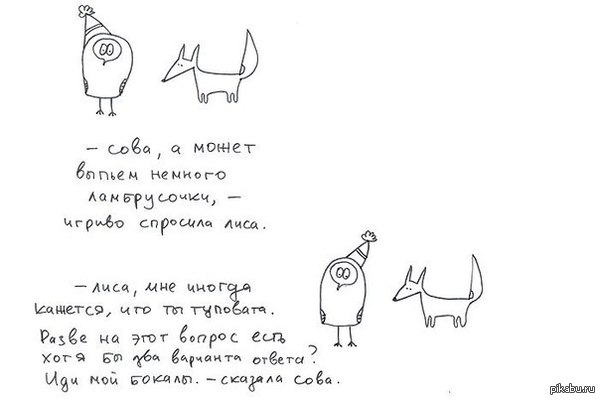 – сова, а может
выпьем немного
ламбрусочки, –
игриво спросила лиса.
– лиса, мне иногда
кажется, что ты туповата.
Разве на этот вопрос есть
хотя бы два варианта ответа?
Иди мой бокалы. – сказала сова.
pikabu.ru